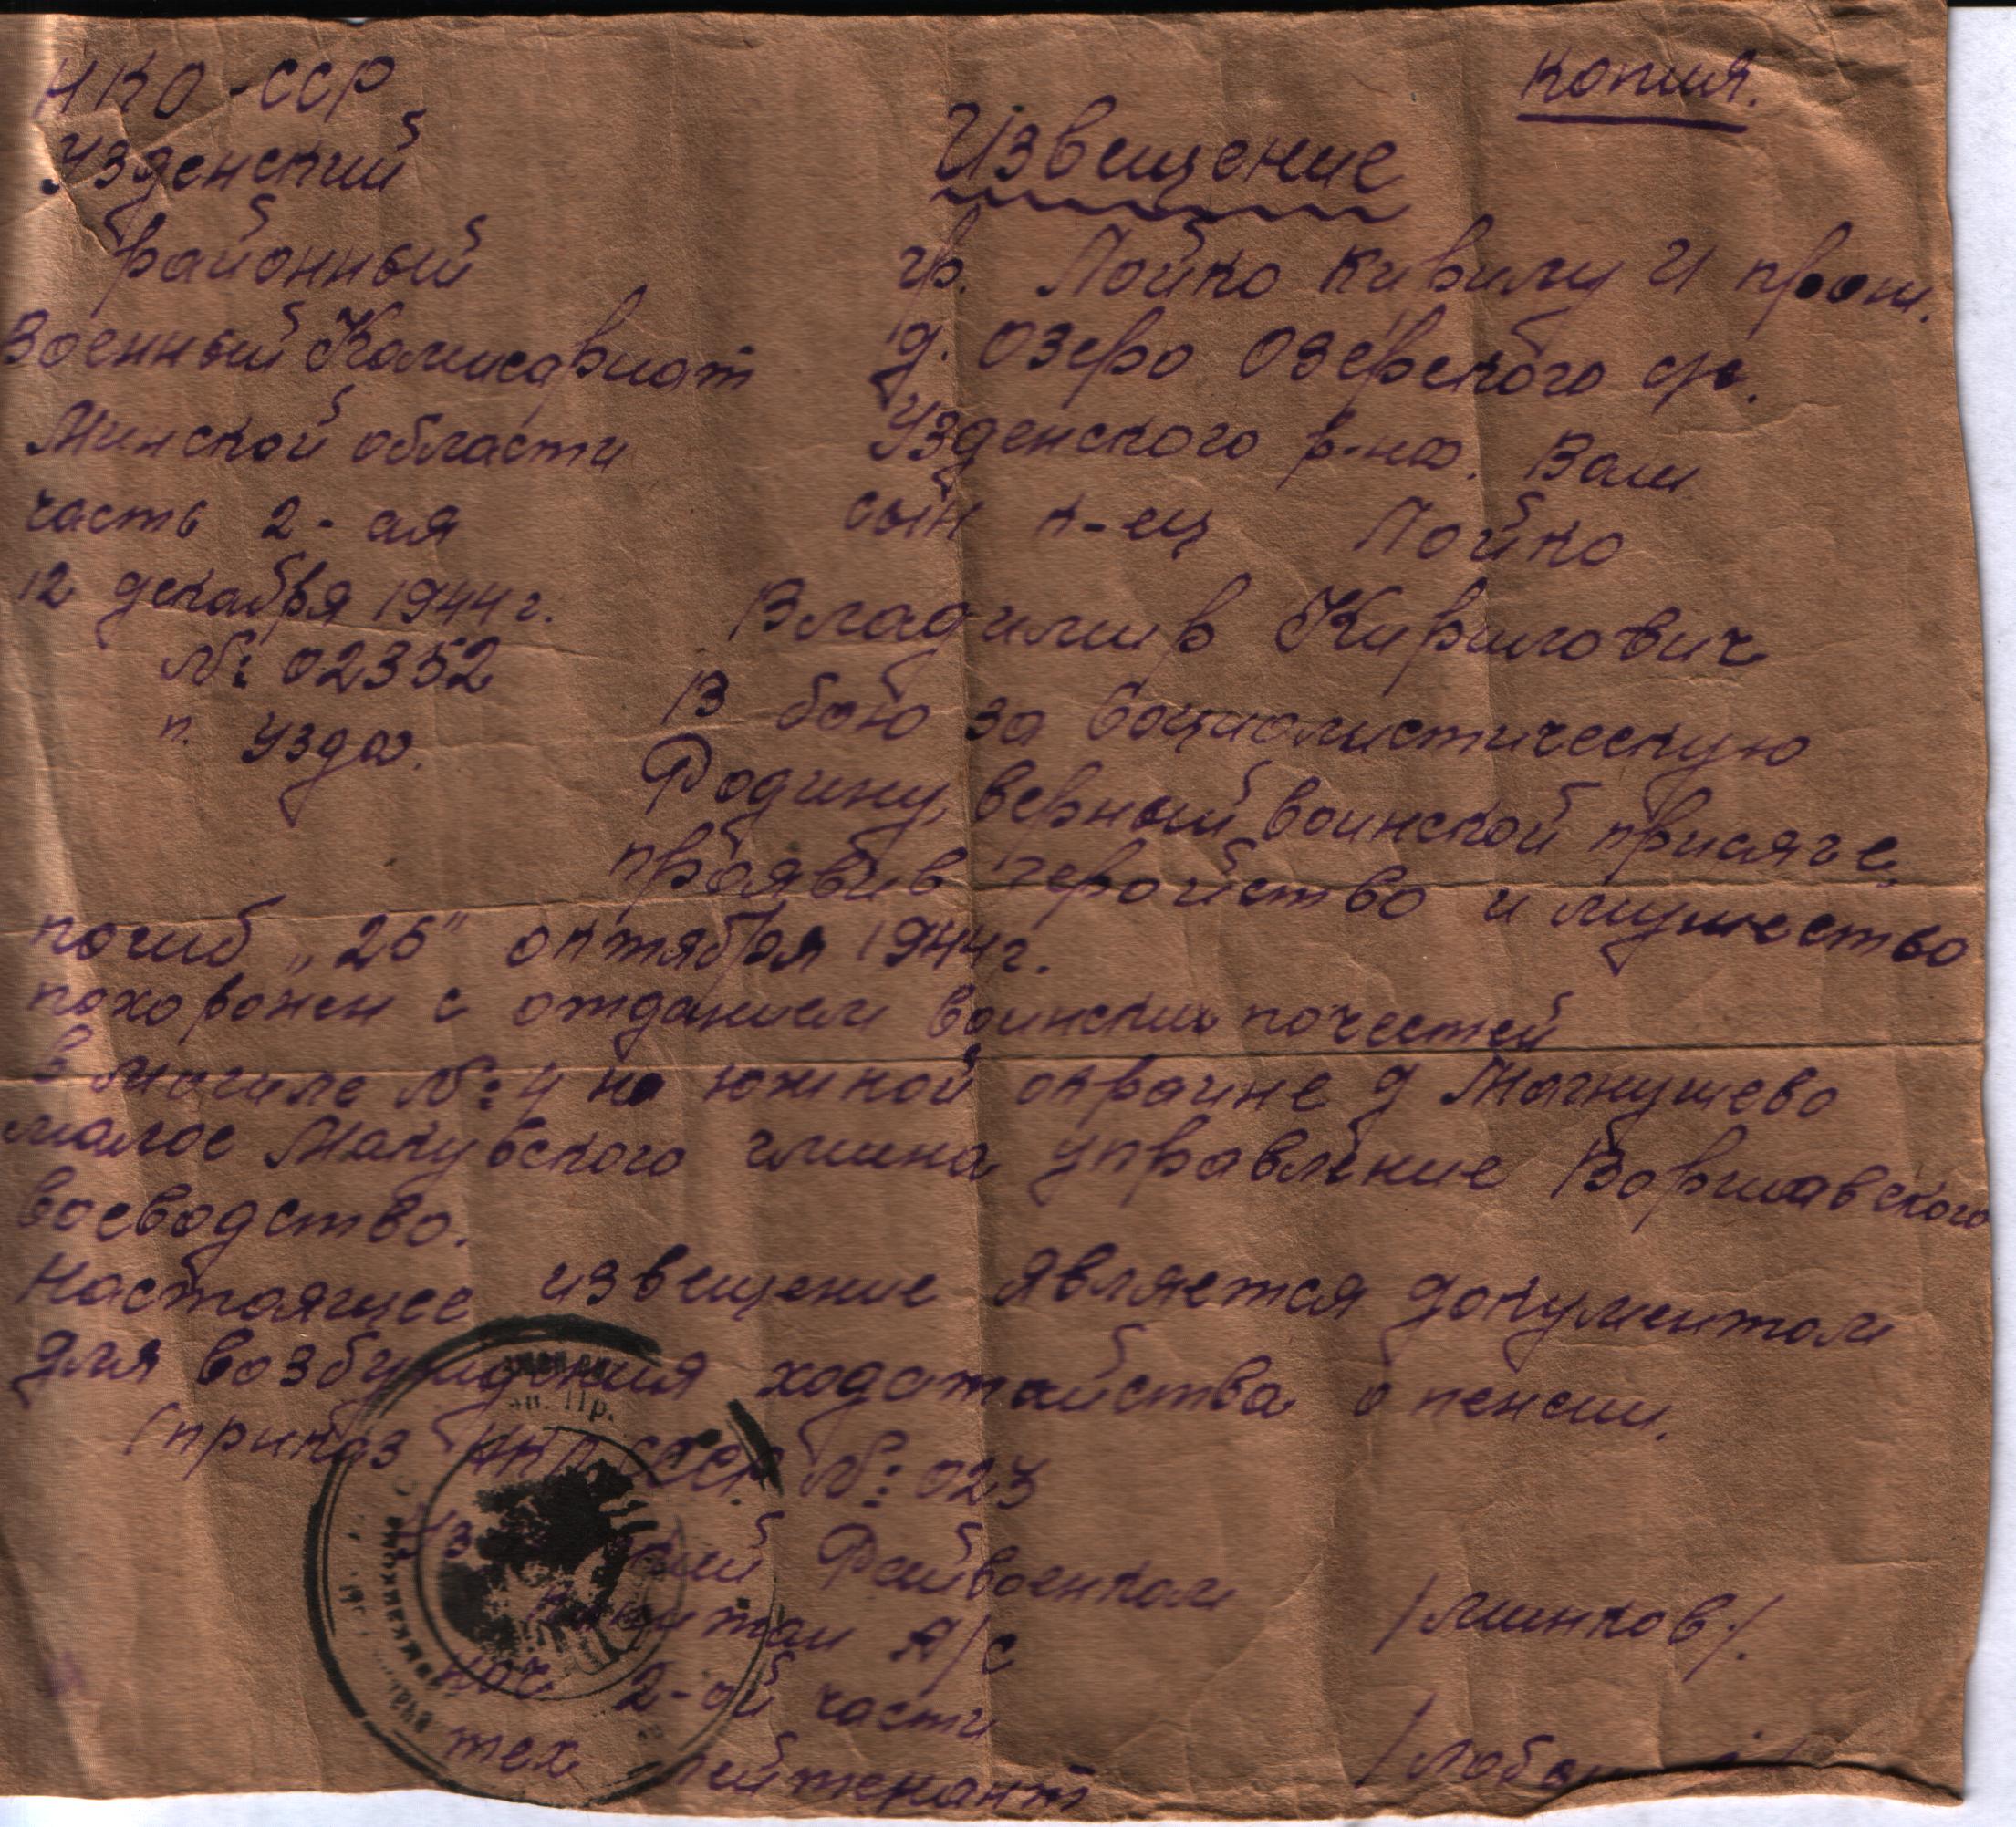 Копия.
НКО-ССР
Узденский
районный
Военный Комисариат
Минской области
часть 2-ая
12 декабря 1944 г.
№: 02352
п. Узда.
Извещение
гр. Лойко Кирилу И прож.
д. Озеро Озерского с/с.
Узденского р-на. Ваш
сын к-ец Лойко
Владимир Кирилович
В бою за Социалистическую
Родину, верный воинской присяге,
проявив геройство и мужество
погиб „26" октября 1944 г.
похоронен с отданием воинских почестей
в могиле №: 4 на южной окраине д Магнушево
малое Макувского гмина управление Варшавского
воеводство.
Настоящее извещение является документом
для возбуждения ходатайства о пенсии.
(приказ НКО СССР №: 023
Райвоенком
капитан А/с /Минков/.
нач 2-ой части
тех лейтенант